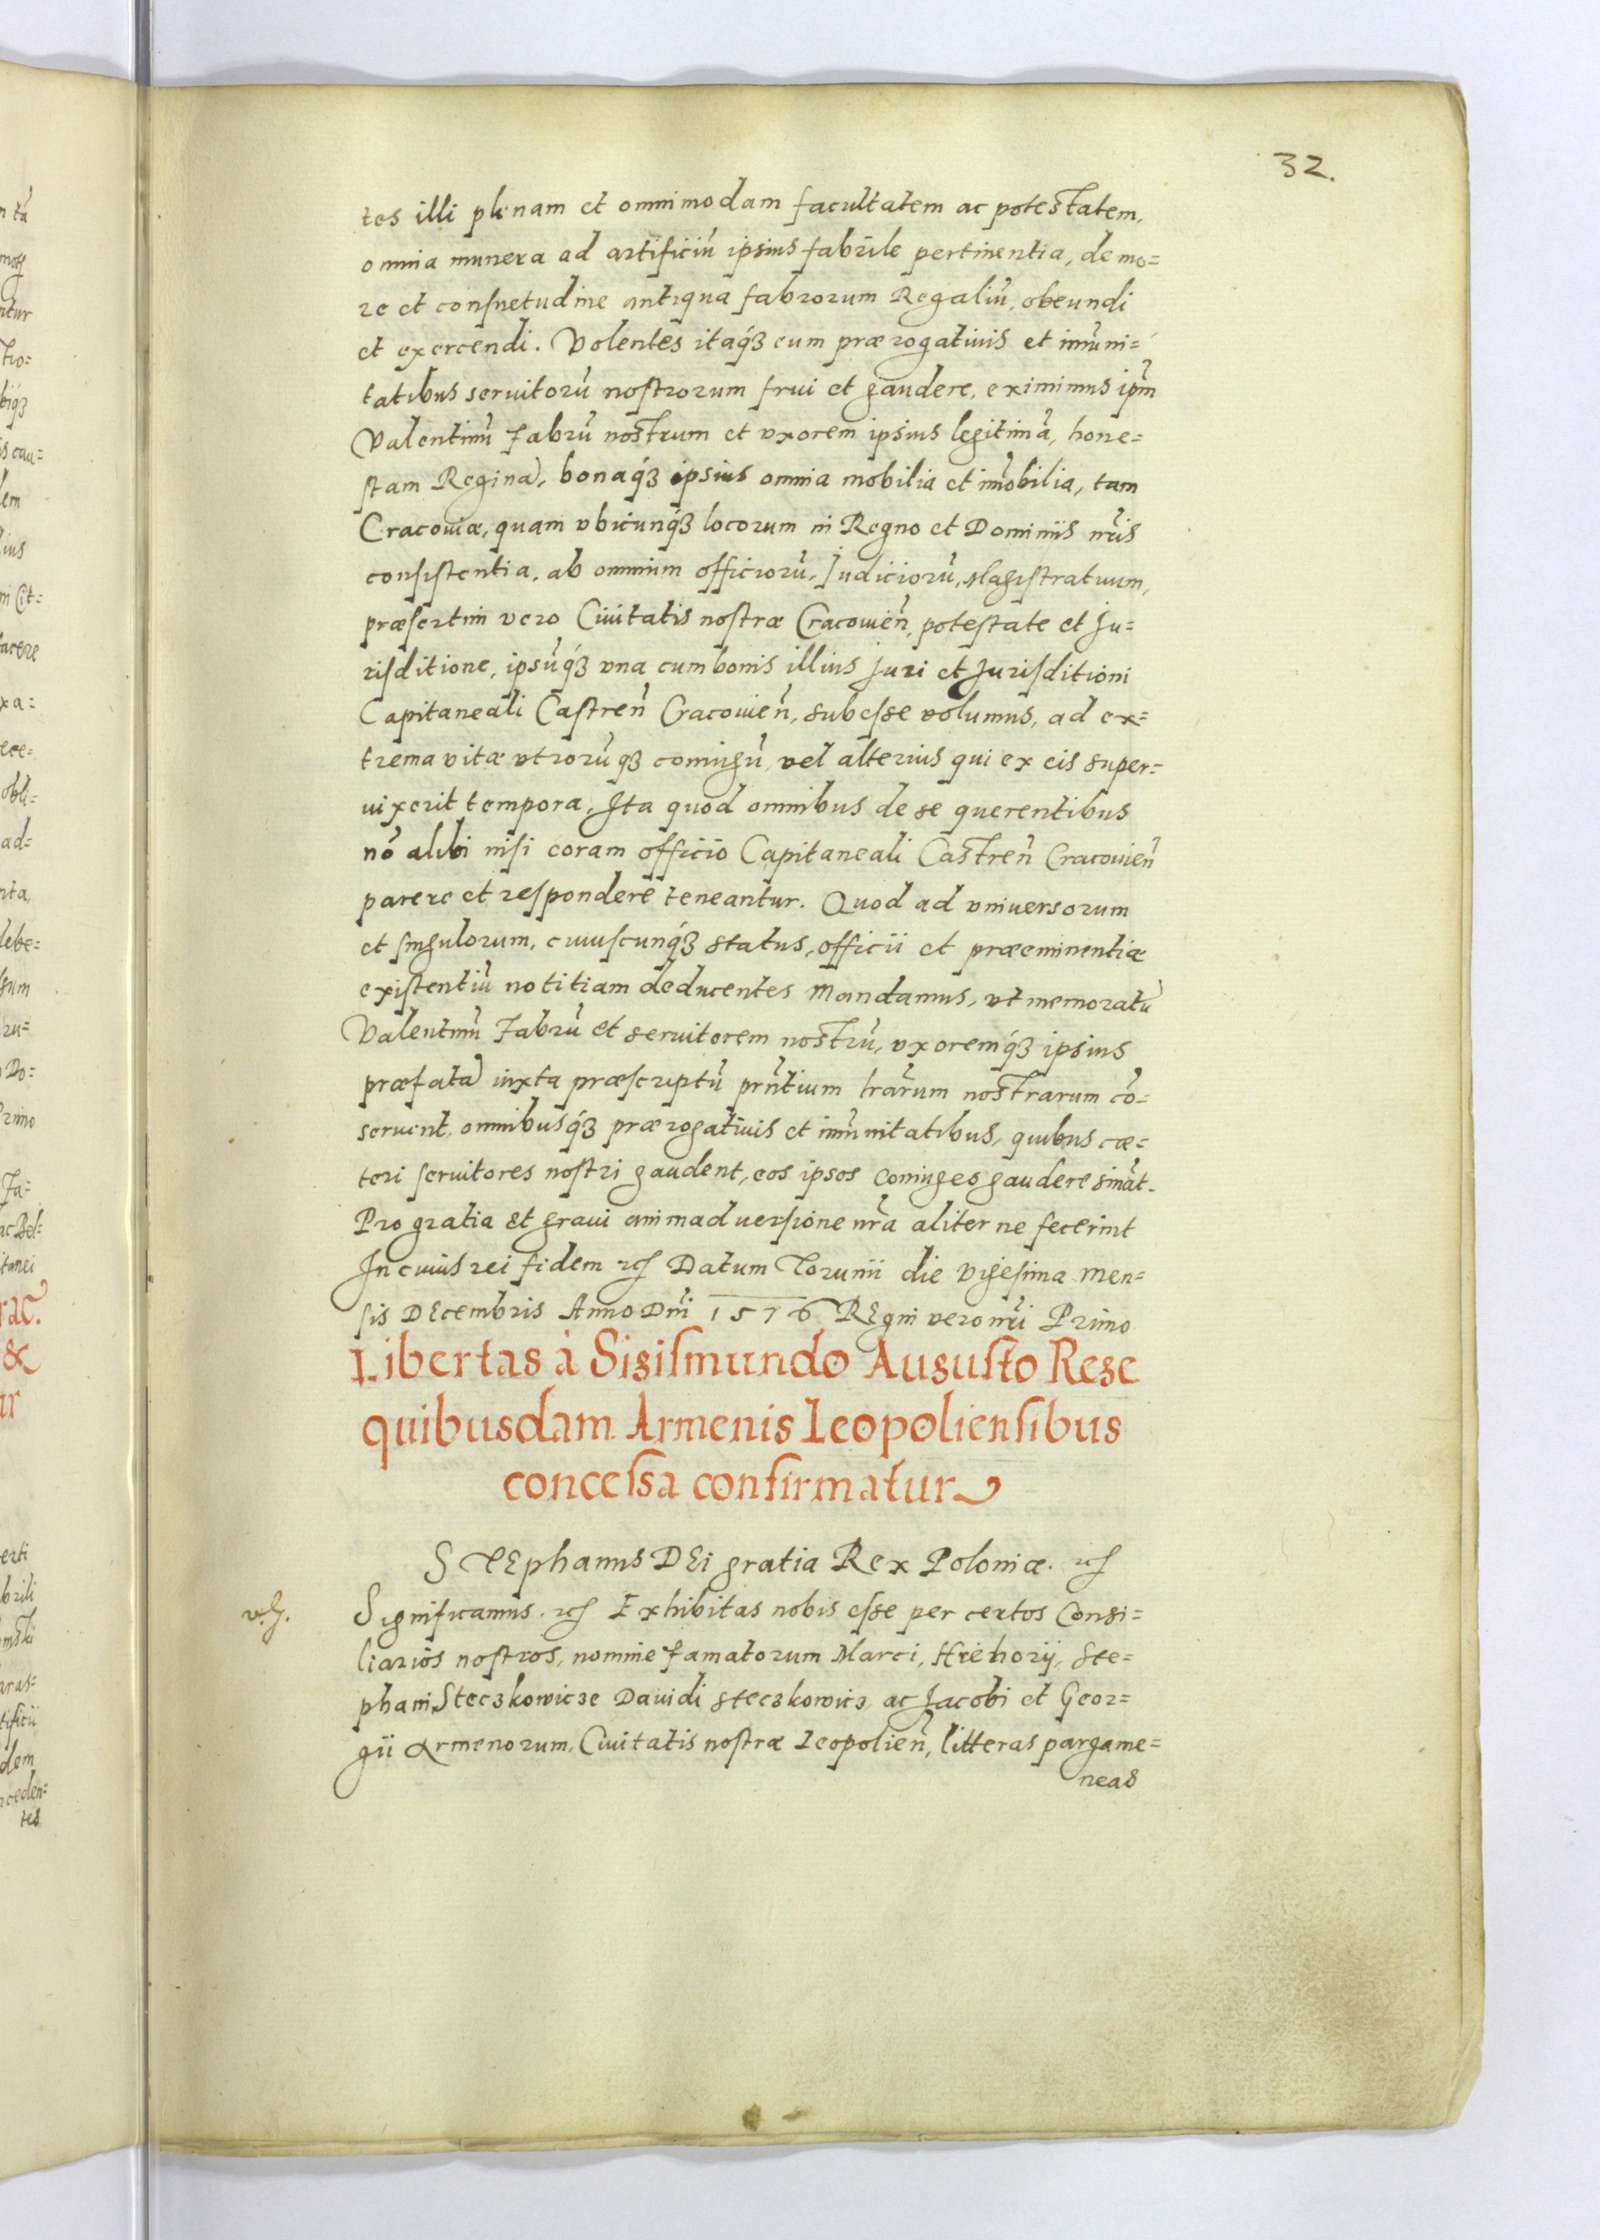 32.
tes illi plenam et omnimodam facultatem ac potestatem,
omnia munera ad artificiũ ipsius fabrile pertinentia, de mo=
re et consuetudine antiqua fabrorum Regaliũ, obeundi
et exercendi. Volentes itaq́ꝫ eum prærogativis et im̃uni=
tatibus servitorũ nostrorum frui et gaudere, eximimus ip̃m
Valentinũ Fabrũ nostrum et vxorem ipsius legitimã, hone=
stam Reginã, bonaq́ꝫ ipsius omnia mobilia et im̃obilia, tam
Cracoviæ, quam vbicunq́ꝫ locorum in Regno et Dominiis nr̃is
consistentia, ab omnium officiorũ, Judiciorũ, Magistratuum,
præsertim vero Civitatis nostræ Cracovieñ, potestate et Ju=
risditione, ipsũq́ꝫ vna cum bonis illius Juri et Jurisditioni
Capitaneali Castreñ Cracovieñ, subesse volumus, ad ex=
trema vitæ vtrorũqꝫ coniugũ, vel alterius qui ex eis super=
uixerit tempora, Ita quod omnibus de se querentibus
nõ alibi nisi coram officio Capitaneali Castreñ Cracovieñ
parere et respondere teneantur. Quod ad vniversorum
et singulorum, cuiuscunq́ꝫ status, officii et præeminentiæ
existentiũ notitiam deducentes Mandamus, vt memoratũ
Valentinũ Fabrũ et servitorem nostrũ, vxoremq́ꝫ ipsius
præfatã iuxta præscriptũ pr̃ntium lr̃arum nostrarum cõ=
servent, omnibusq́ꝫ prærogativis et im̃unitatibus, quibus cæ=
teri servitores nostri gaudent, eos ipsos coniuges gaudere sinãt.
Pro gratia et gravi animadversione nr̃a aliter ne fecerint
In cuius rei fidem ꝛc̃ Datum Torunii die vigesima Men=
sis DEcembris Anno Dñi 1576 REgni vero nr̃i Primo
Libertas à Sigismundo Augusto Rege
quibusdam Armenis Leopoliensibus
concessa confirmatur
STEphanus DEi gratia Rex Poloniæ. ꝛc̃
Significamus. ꝛc̃ Exhibitas nobis esse per certos Consi=
liarios nostros, nomine famatorum Marci, Hrehorÿ, Ste=
phani Steczkowicze Davidi Steczkowicz, ac Jacobi et Geor=
gii Armenorum, Civitatis nostræ Leopolieñ, litteras pargame=
neas